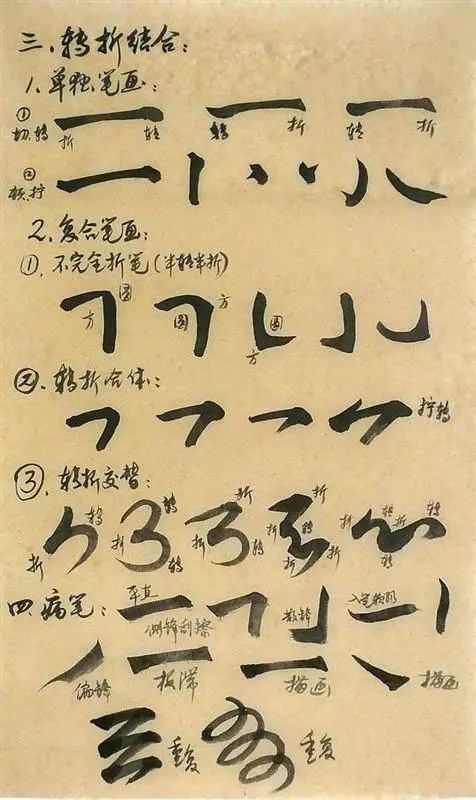 三、转折结合：
1.单独笔画：
①切.转 折 转 转 折 转 折
②顿.拧
2.复合笔画：
①.不完全折笔（半转半折）
方 圆 圆 方 方 圆
②.转折合体：
拧转
③.转折交替：
折 转 折 转 转 折 折 转 折 折 转 折 折 转 折 转 转
四.病笔：
平直 侧锋刮擦 散锋
偏锋 板滞 描画 描画
重复 重复